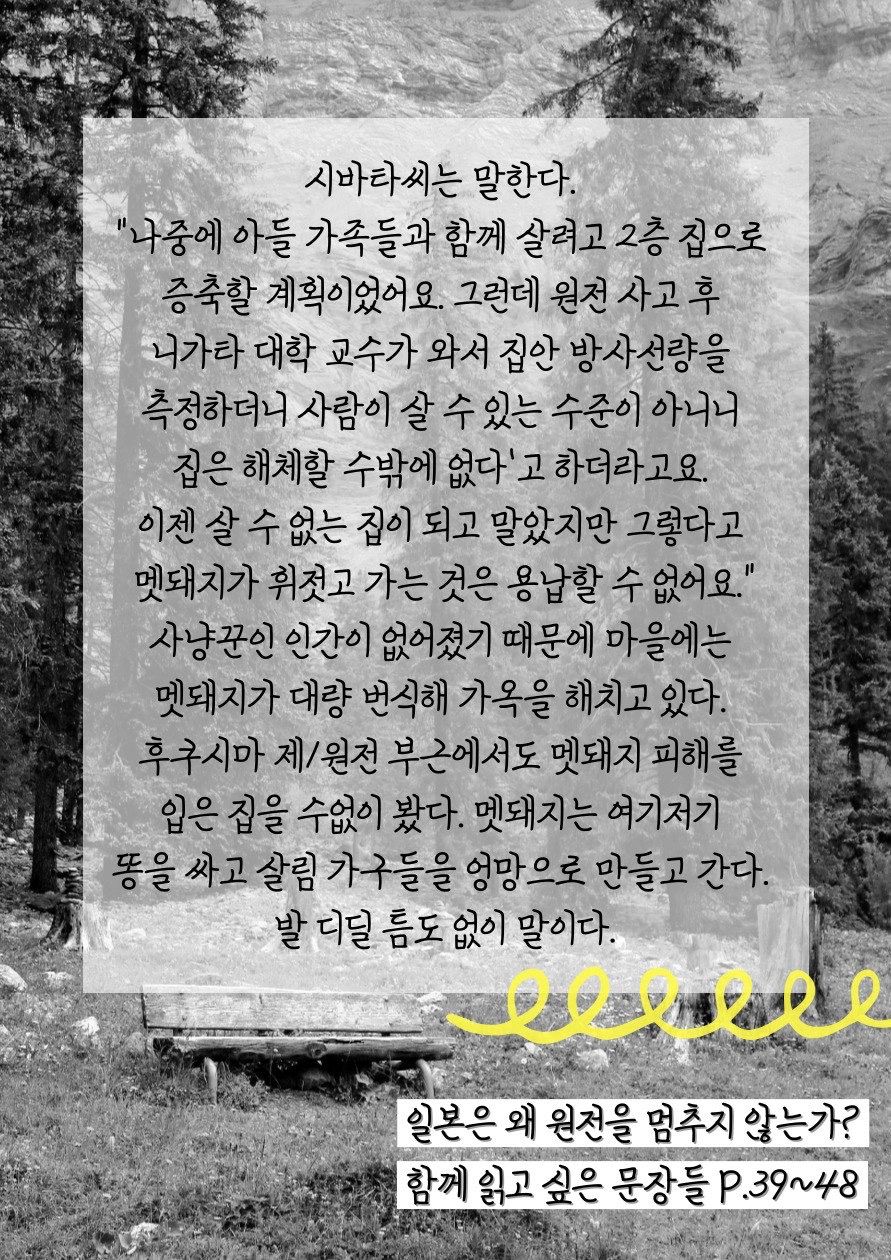 시바타씨는 말한다.
"나중에 아들 가족들과 함께 살려고 2층 집으로
증축할 계획이었어요. 그런데 원전 사고 후
니가타 대학 교수가 와서 집안 방사선량을
측정하더니 사람이 살 수 있는 수준이 아니니
집은 해체할 수밖에 없다'고 하더라고요.
이젠 살 수 없는 집이 되고 말았지만 그렇다고
멧돼지가 휘젓고 가는 것은 용납할 수 없어요."
사냥꾼인 인간이 없어졌기 때문에 마을에는
멧돼지가 대량 번식해 가옥을 해치고 있다.
후쿠시마 제/원전 부근에서도 멧돼지 피해를
입은 집을 수없이 봤다. 멧돼지는 여기저기
똥을 싸고 살림 가구들을 엉망으로 만들고 간다.
발 디딜 틈도 없이 말이다.
일본은 왜 원전을 멈추지 않는가?
함께 읽고 싶은 문장들 P.39~48